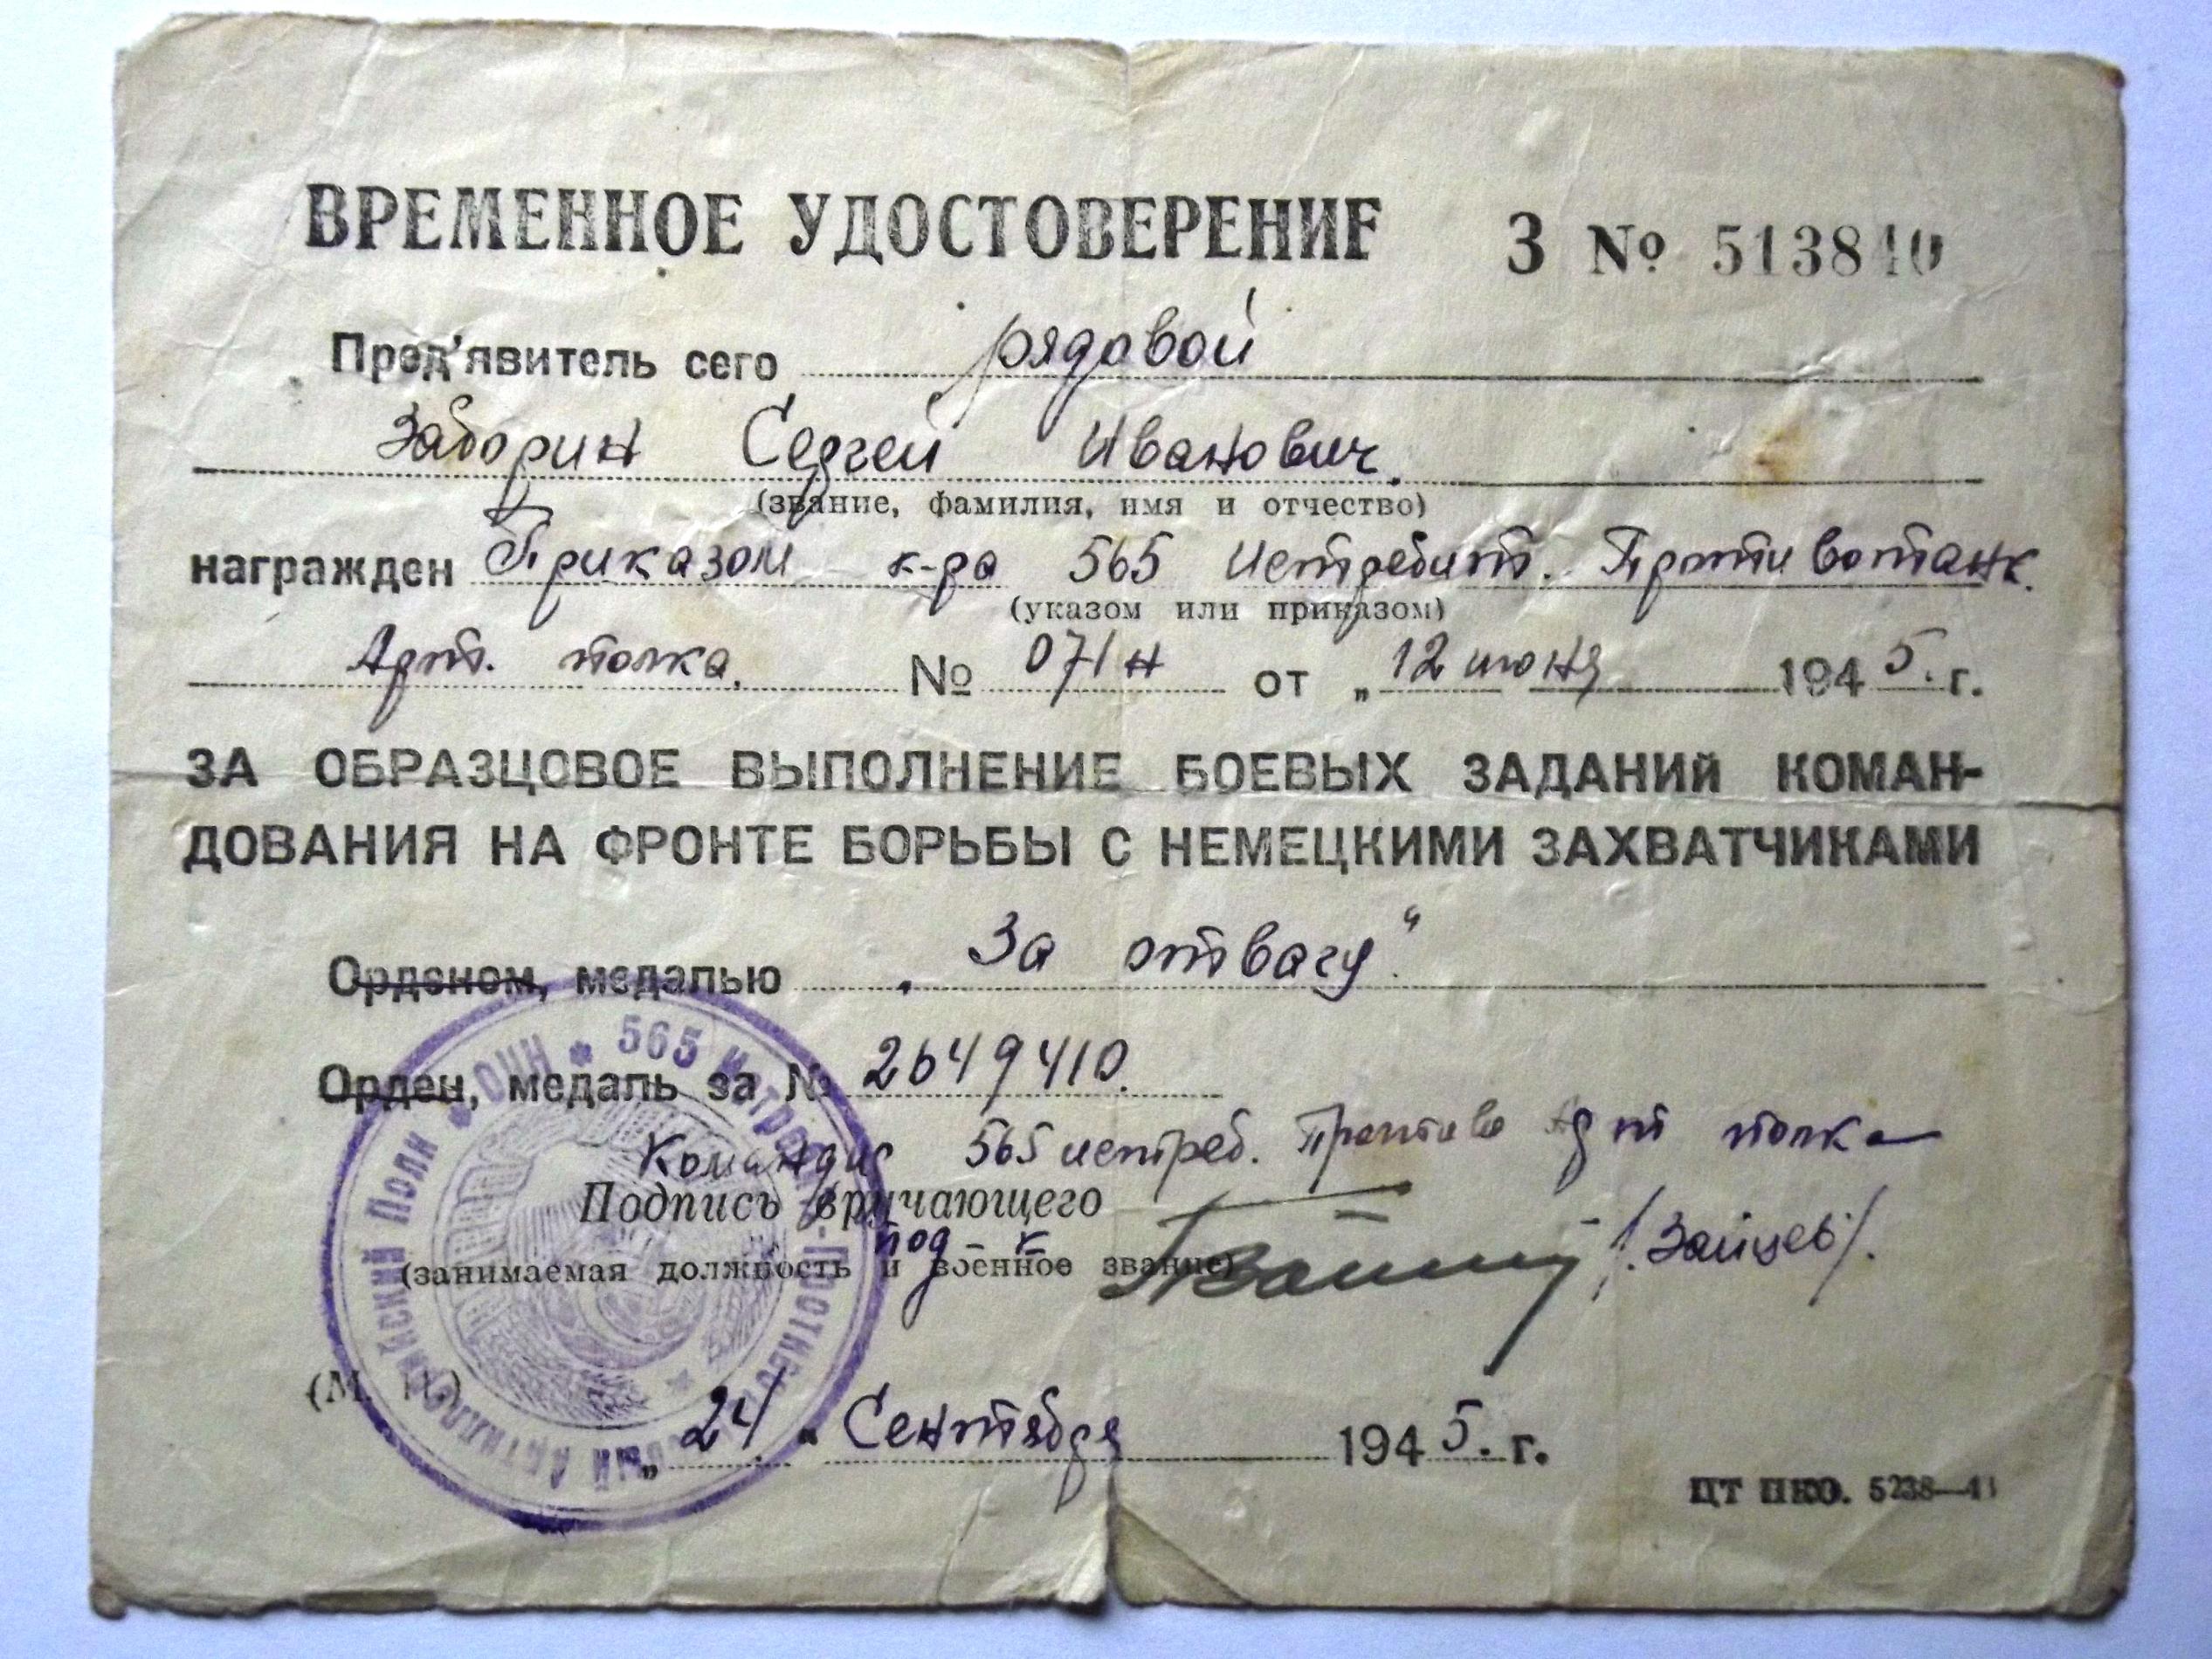 ВРЕМЕННОЕ УДОСТОВЕРЕНИЕ З № 513810
Пред'явитель сего рядовой
Заборин Сергей Иванович.
(звание, фамилия, имя и отчество)
награжден Приказом к-ра 565 Истребит. Противотанк.
(указом или приказом)
Арт. полка. № 071н от „12 июня 1945. г.
ЗА ОБРАЗЦОВОЕ ВЫПОЛНЕНИЕ БОЕВЫХ ЗАДАНИЙ КОМАН-
ДОВАНИЯ НА ФРОНТЕ БОРЬБЫ С НЕМЕЦКИМИ ЗАХВАТЧИКАМИ
Орденом, медалью „За отвагу“.
Орден, медаль за № 2649410.
Командир 565 истреб. Противо Арт полка
Подпись вручающего
под-к /Зайцев/.
(занимаемая должность и военное звание)
(М. П.)
„24“ Сентября 1945. г.
ЦТ НКО. 5238—41
565 Истреб.-Противо Артиллерийский Полк